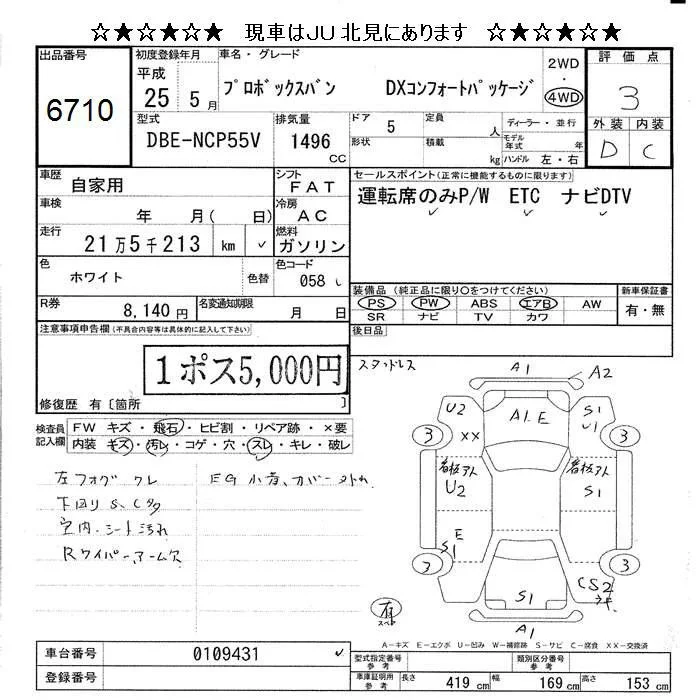 ☆★☆★☆★ 現車はJU北見にあります ☆★☆★☆★
出品番号
6710
初度登録年月
平成
25 5 月
車名・グレード
プロボックスバン DXコンフォートパッケージ
2WD
・
4WD
評価点
3
外装 内装
D C
型式
DBE-NCP55V
排気量
1496
CC
ドア 5
形状
定員 人
積載 kg
ディーラー・並行
モデル年式 年
ハンドル 左・右
車歴 自家用
車検 年 月( 日)
走行 21万5千213 km ✓
シフト FAT
冷房 AC
燃料 ガソリン
色 ホワイト 色替
色コード 058
R券 8,140円
名変通知期限 月 日
セールスポイント(正常に機能するものに限ります)
運転席のみP/W ETC ナビDTV
装備品 (純正品に限り○をつけてください)
PS PW ABS エアB AW
SR ナビ TV カワ
新車保証書
有・無
後日品
注意事項申告欄(不具合内容等は具体的に記入して下さい)
1ポス5,000円
修復歴 有〔箇所 〕
検査員記入欄
FW キズ・飛石・ヒビ割・リペア跡・×要
内装 キズ・汚レ・コゲ・穴・スレ・キレ・破レ
左フォグ クレ
下回り S、Cタク
室内・シート汚れ
Rワイパーアーム欠
EG小音、カバー外れ
スタッドレス
A1
A2
U2
A1.E
S1
U1
3
XX
3
看板アト
U2
看板アト
S1
E
S1
3
3
S1
CS2
A1
有
スペト
A-キズ E-エクボ U-凹み W-補修跡 S-サビ C-腐食 XX-交換済
車台番号 0109431 ✓
登録番号
型式指定番号
参考
類別区分番号
参考
車庫証明用
参考
長さ 419 cm 幅 169 cm 高さ 153 cm